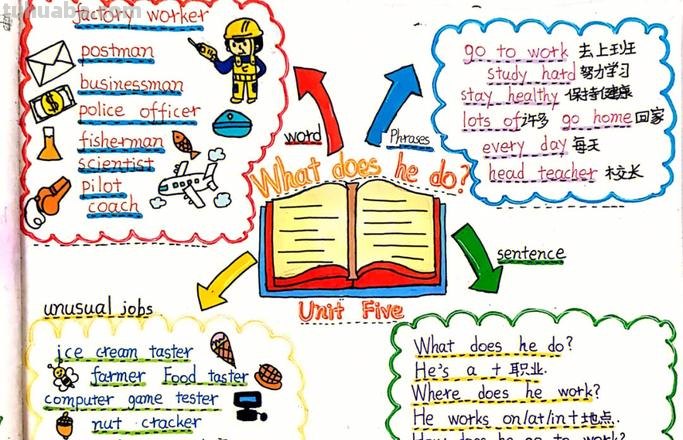 tuhuaba.com
factory worker
postman
businessman
police officer
fisherman
scientist
pilot
coach
word
Phrases
go to work 去上班
study hard 努力学习
stay healthy 保持健康
lots of 许多 go home 回家
every day 每天
head teacher 校长
What does he do?
Unit Five
sentence
unusual jobs
ice cream taster
farmer Food taster
computer game tester
nut cracker
What does he do?
He's a + 职业.
Where does he work?
He works on/at/in + 地点.
How does he go to work?